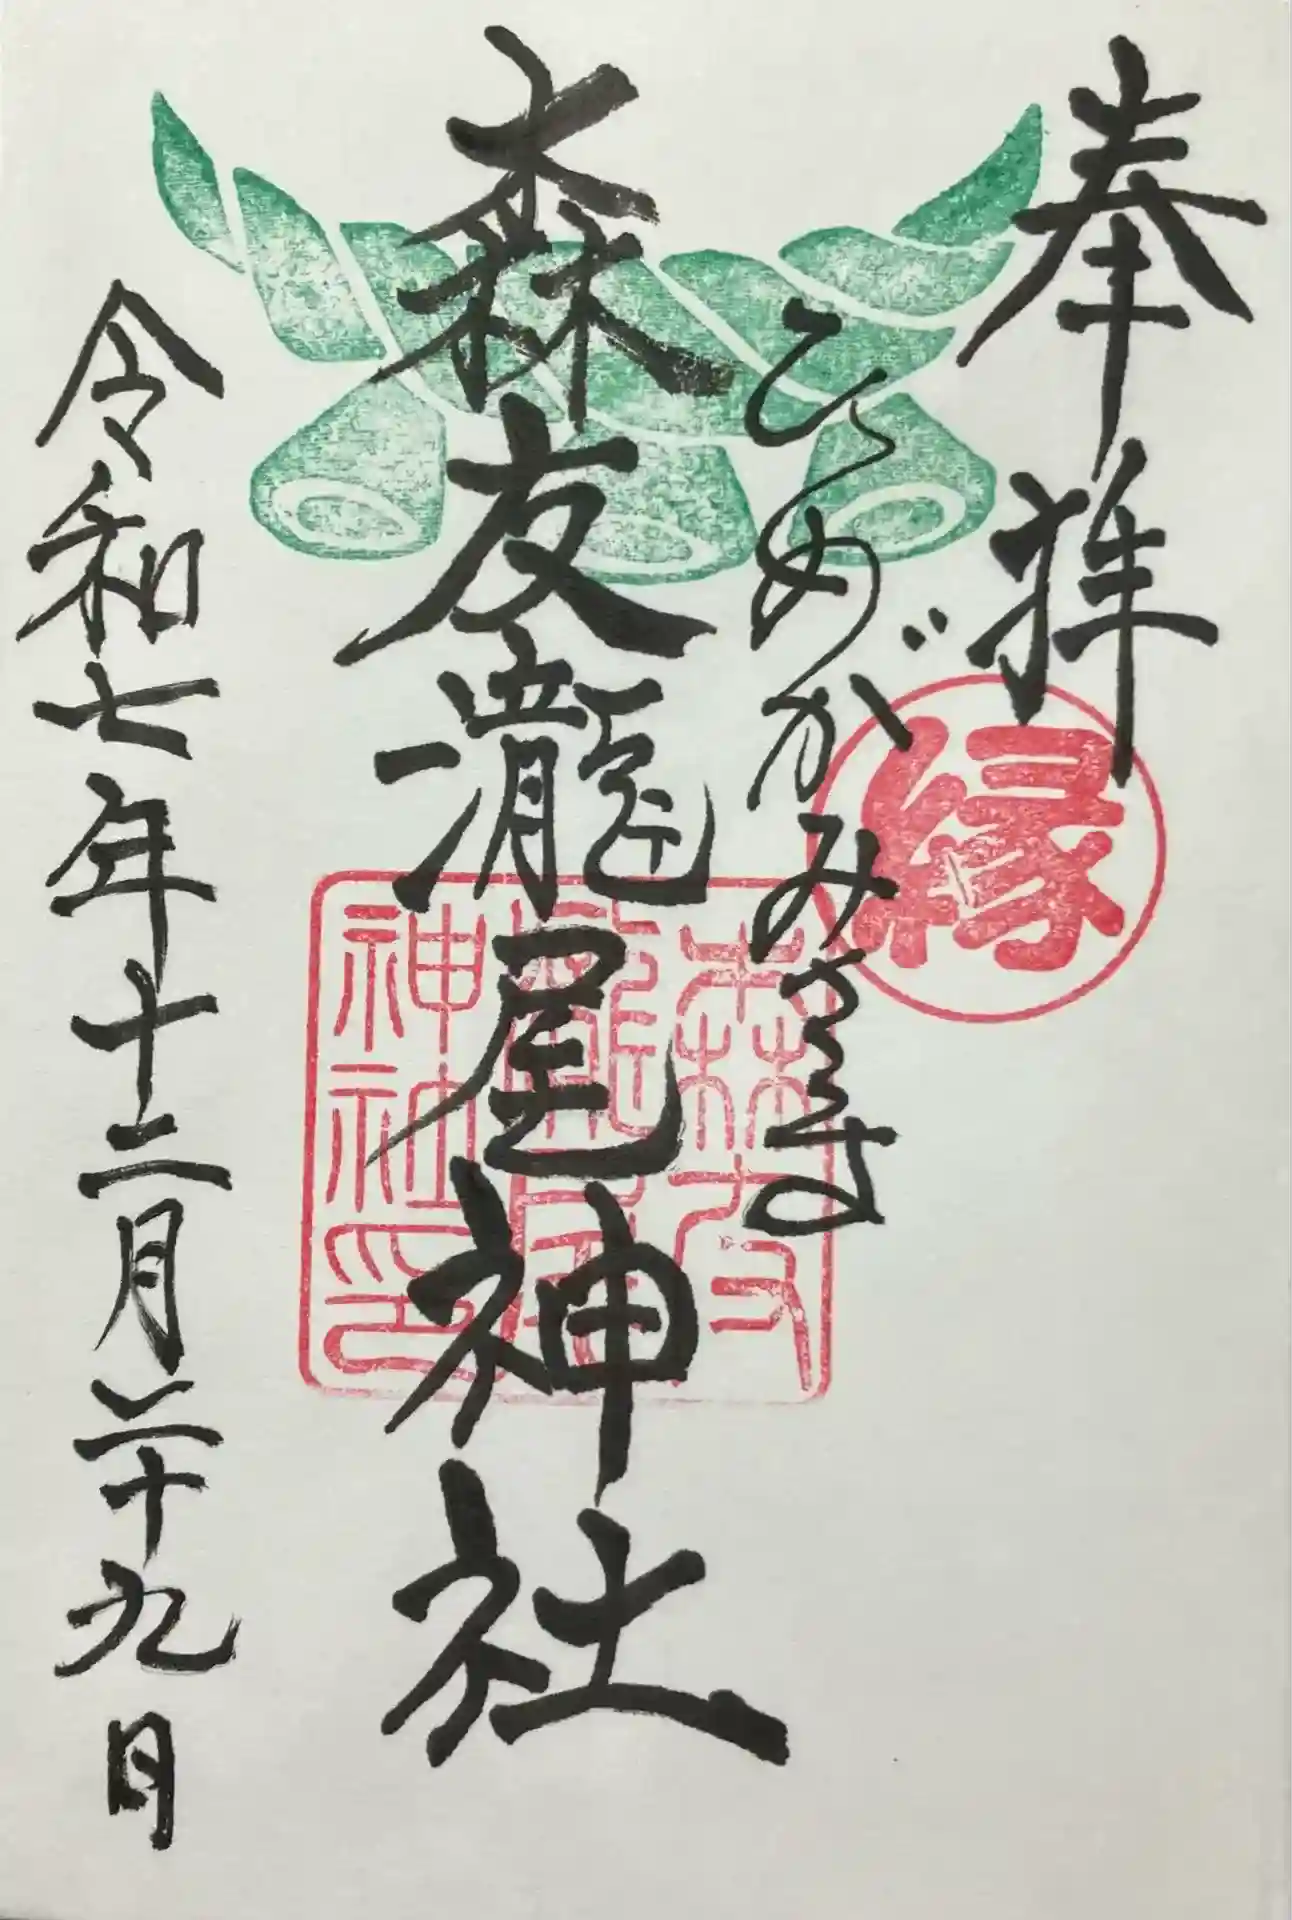 奉拝
縁
ひめがみさまの
森友瀧尾神社
森友
瀧尾
神社印
令和七年十二月二十九日